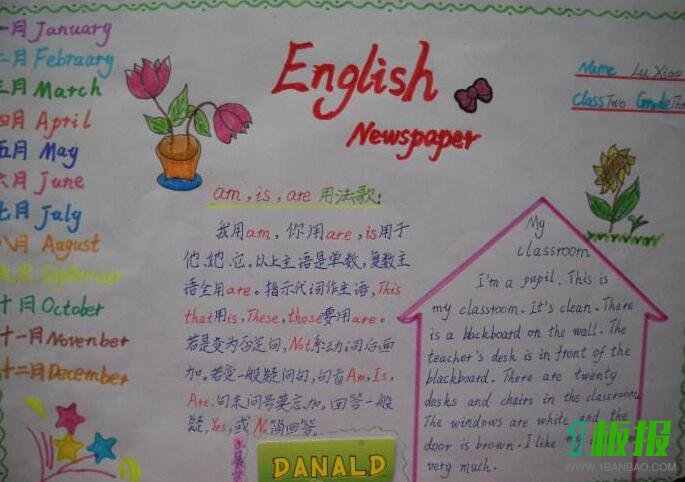 一月 January
二月 February
三月 March
四月 April
五月 May
六月 June
七月 July
八月 August
九月 September
十月 October
十一月 November
十二月 December
English
Newspaper
Name Lu Xiao
Class Two Grade Th
am, is, are 用法歌:
我用am, 你用are, is用于
他,她,它。以上主语是单数,复数主
语全用are。指示代词作主语, This
that用is, These, those要用are。
若是变为否定句, Not系动词后面
加。若变一般疑问句,句首Am, Is,
Are,句末问号莫忘加。回答一般
疑, Yes, 或No简回答。
DANALD
My
classroom
I'm a pupil. This is
my classroom. It's clean. There
is a blackboard on the wall. The
teacher's desk is in front of the
blackboard. There are twenty
desks and chairs in the classroom.
The windows are white and the
door is brown. I like my
very much.
板报
WWW.1BANBAO.COM